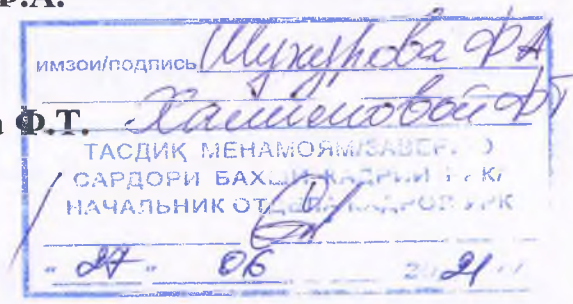 Ф.А.
имзои/подпись Шукурова ФА
Ф.Т. Халимовой ФТ
ТАСДИҚ МЕНАМОЯМ/ЗАВЕР
САРДОРИ БАХШИ КАДРИИ
НАЧАЛЬНИК ОТДЕЛА КАДРОВ УРК
"27" 06 2021